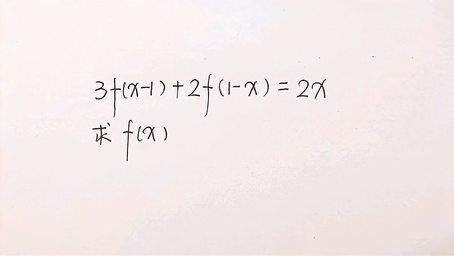 3f(x-1)+2f(1-x)=2x
求 f(x)